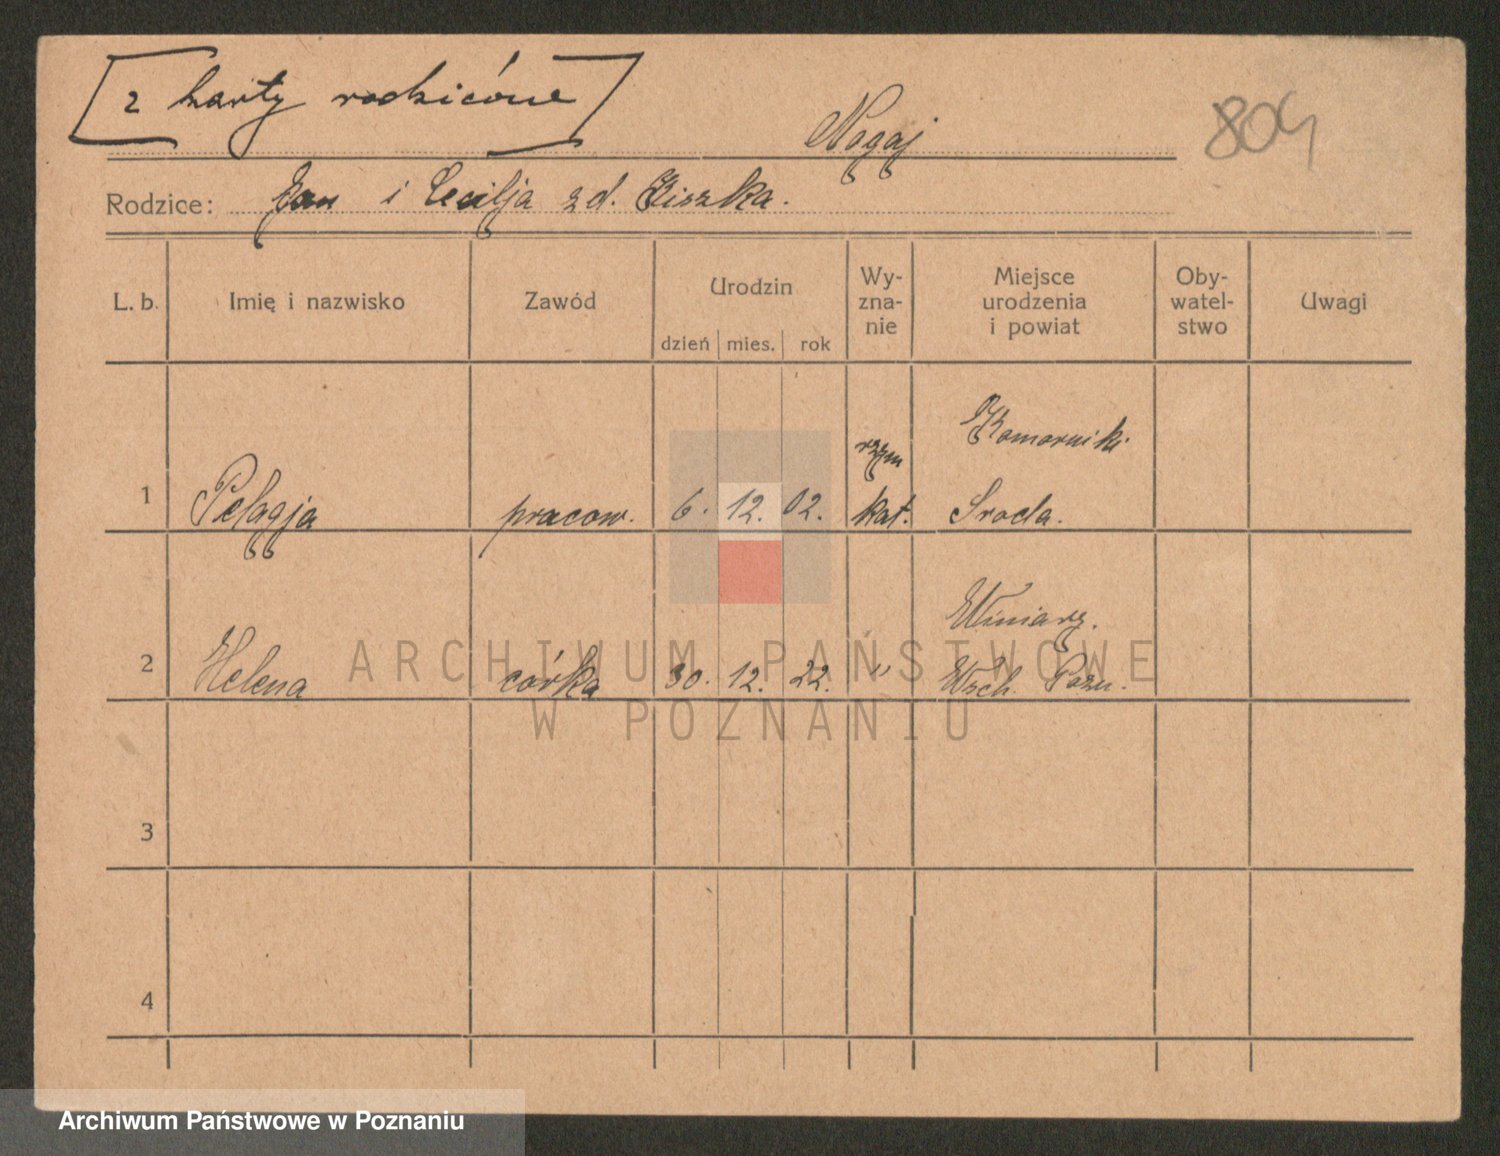 z karty rodziców
Nogaj
804
Rodzice: Jan i Cecilja zd. Kiszka.
L. b. Imię i nazwisko Zawód Urodzin dzień mies. rok Wy-zna-nie Miejsce urodzenia i powiat Oby-watel-stwo Uwagi
rzym Komorniki
1 Pelagja pracow. 6. 12. 02. kat. Sroda.
Winiarg.
2 Helena córka 30. 12. 22. " Wsch. Pozn.
3
4
ARCHIWUM PAŃSTWOWE
W POZNANIU
Archiwum Państwowe w Poznaniu